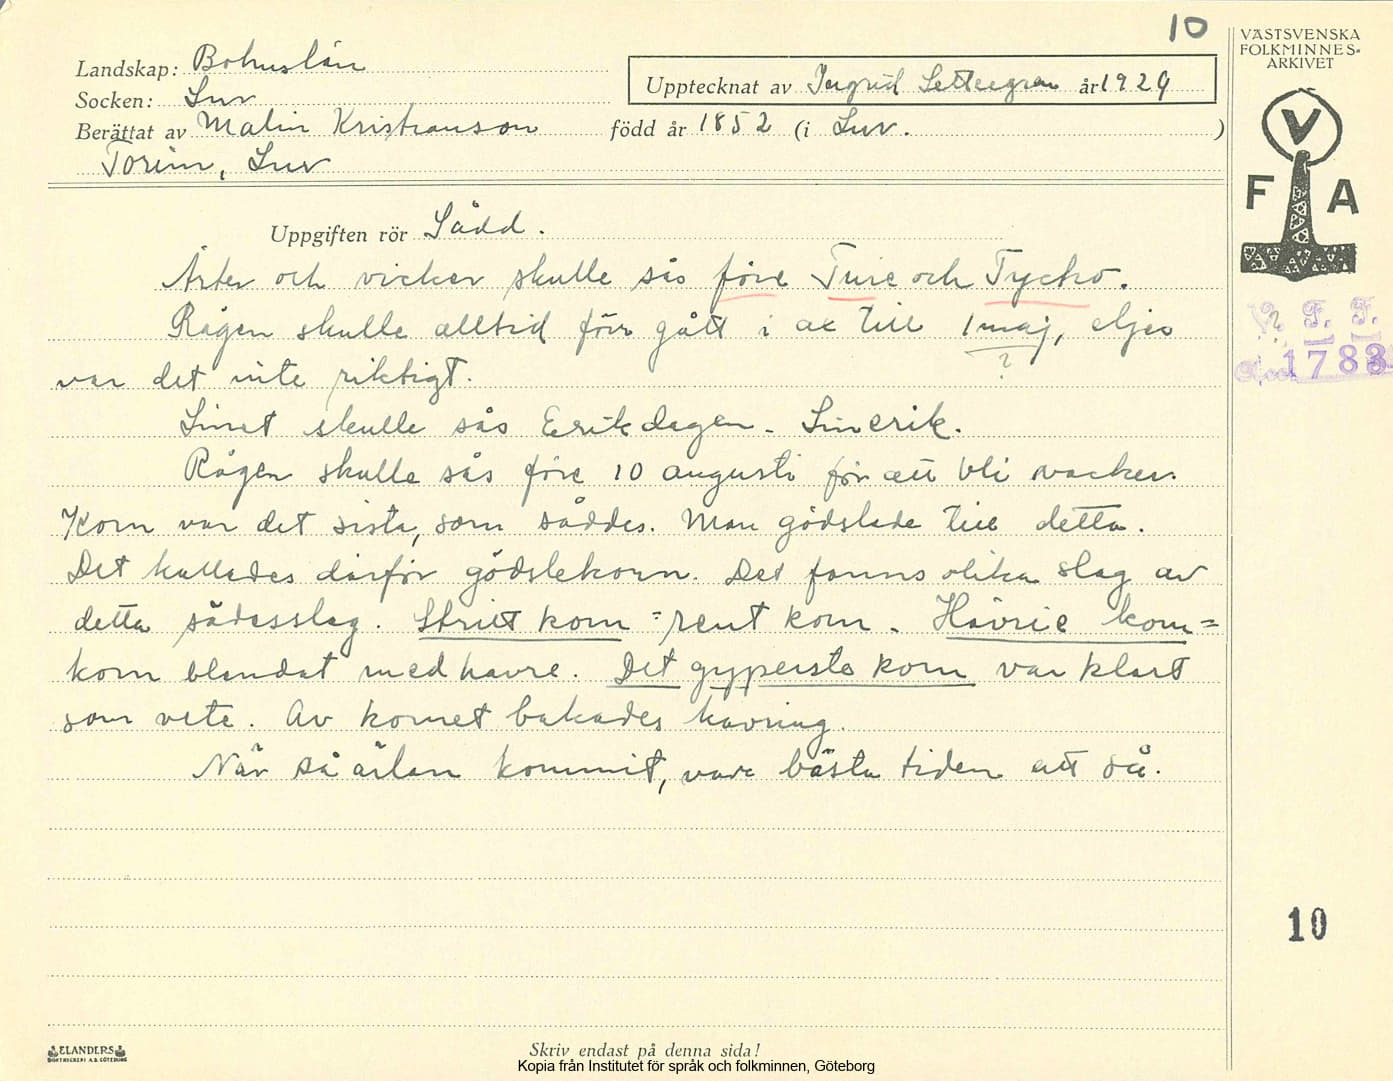 10
VÄSTSVENSKA
FOLKMINNES-
ARKIVET
Landskap: Bohuslän
Upptecknat av Ingrid Settergren år 1929
Socken: Sur
Berättat av Malin Kristianson född år 1852 (i Sur. )
Torim, Sur
V
F A
Uppgiften rör Sådd.
Ärter och vicker skulle sås före Ture och Tycho.
Rågen skulle alltid förr gått i ax till 1 maj, eljes
?
var det inte riktigt.
Linet skulle sås Erikdagen - Linerik.
Rågen skulle sås före 10 augusti för att bli vacker.
Korn var det sista, som såddes. Man gödslade till detta.
Det kallades därför gödslekorn. Det fanns olika slag av
detta sädesslag. Stritt korn = rent korn. Hävrie korn =
korn blandat med havre. Det gyperste korn var klart
som vete. Av kornet bakades kavring.
När såärlan kommit, var bästa tiden att så.
V. F. F.
Acc. 1783
10
ELANDERS
BOKTRYCKERI A.B. GÖTEBORG
Skriv endast på denna sida!
Kopia från Institutet för språk och folkminnen, Göteborg